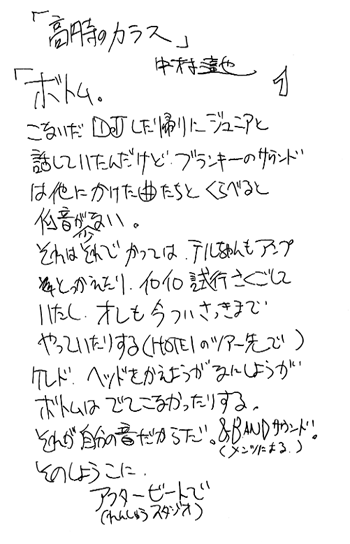 「高円寺のカラス」
中村達也
「ボトム。
1
こないだDJした帰りにジュニアと
話していたんだけど、ブランキーのサウンド
は他にかけた曲たちとくらべると
低音がない。
少
それはそれでかっては、テルちゃんもアンプ
とっかえたり、イロイロ試行さくごして
いたし、オレも今ついさっきまで
やっていたりする(HOTEIのツアー先で)
ケレド、ヘッドをかえようがなにしようが
ボトムはでてこなかったりする。
それが自分の音だからだ。&BANDサウンド!
(メンツによる.)
そのしょうこに、
アフタービートで
(れんしゅうスタジオ)